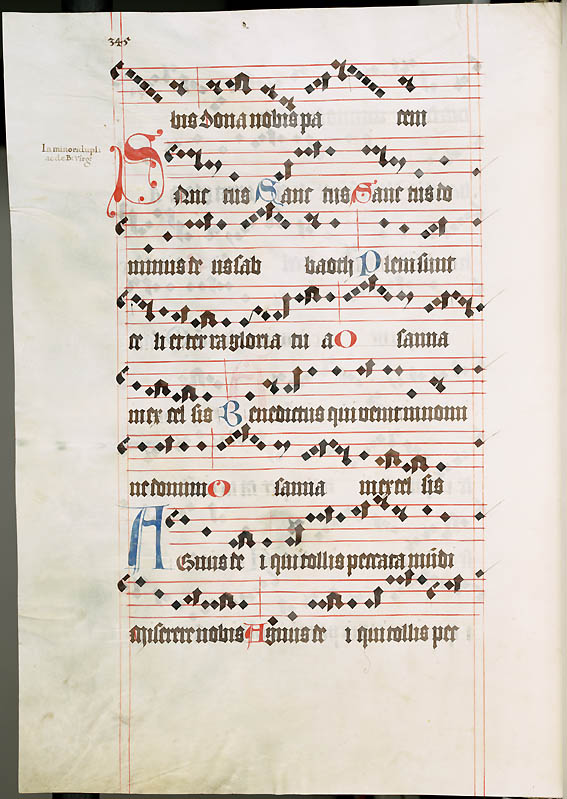 345
In minori dupli
ac de B. Virg.
bis Dona nobis pa cem
Sanc tus Sanc tus Sanc tus do
minus de us sab baoth Pleni sunt
ce li et ter ra gloria tu a O sanna
in ex cel sis Benedictus qui venit in nomi
ne domini O sanna in ex cel sis
Agnus de i qui tollis peccata mūdi
miserere nobis Agnus de i qui tollis pec